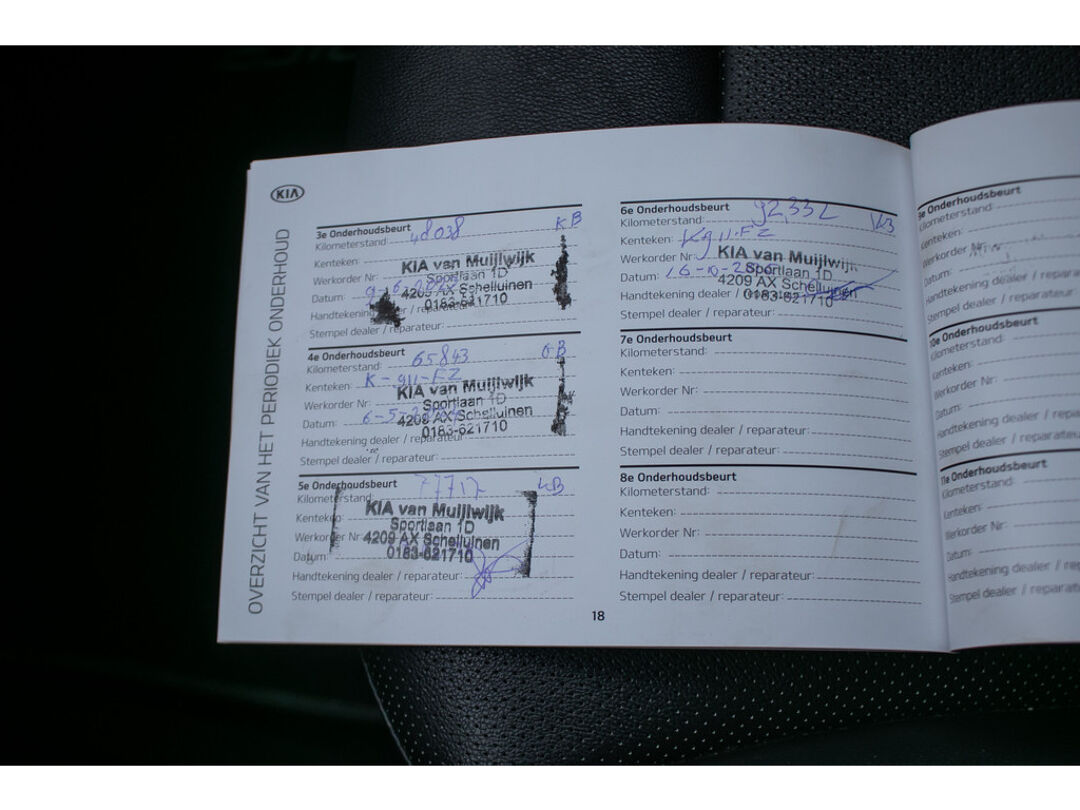 KIA
OVERZICHT VAN HET PERIODIEK ONDERHOUD
3e Onderhoudsbeurt KB
Kilometerstand: 48038
Kenteken:
KIA van Muijlwijk
Werkorder Nr:
Sportlaan 1D
Datum:
4209 AX Schelluinen
0183-621710
Handtekening dealer / reparateur:
Stempel dealer / reparateur:
4e Onderhoudsbeurt
Kilometerstand: 65843
Kenteken: K-911-FZ
KIA van Muijlwijk
Werkorder Nr:
Sportlaan 1D
Datum: 6-5-
4209 AX Schelluinen
0183-621710
Handtekening dealer / reparateur:
Stempel dealer / reparateur:
5e Onderhoudsbeurt
Kilometerstand:
KIA van Muijlwijk
Kenteken:
Sportlaan 1D
Werkorder Nr:
4209 AX Schelluinen
Datum:
0183-621710
Handtekening dealer / reparateur:
Stempel dealer / reparateur:
6e Onderhoudsbeurt
Kilometerstand:
Kenteken: K911-FZ
Werkorder Nr:
KIA van Muijlwijk
Sportlaan 1D
Datum: 16-10-
4209 AX Schelluinen
Handtekening dealer /
0183-621710
Stempel dealer / reparateur:
7e Onderhoudsbeurt
Kilometerstand:
Kenteken:
Werkorder Nr:
Datum:
Handtekening dealer / reparateur:
Stempel dealer / reparateur:
8e Onderhoudsbeurt
Kilometerstand:
Kenteken:
Werkorder Nr:
Datum:
Handtekening dealer / reparateur:
Stempel dealer / reparateur:
18
9e Onderhoudsbeurt
Kilometerstand:
Kenteken:
Werkorder
Datum:
Handtekening dealer /
Stempel dealer / reparateur:
10e Onderhoudsbeurt
Kilometerstand:
Kenteken:
Werkorder Nr:
Datum:
Handtekening dealer /
Stempel dealer /
11e Onderhoudsbeurt
Kilometerstand:
Kenteken:
Werkorder Nr:
Datum:
Handtekening dealer /
Stempel dealer /